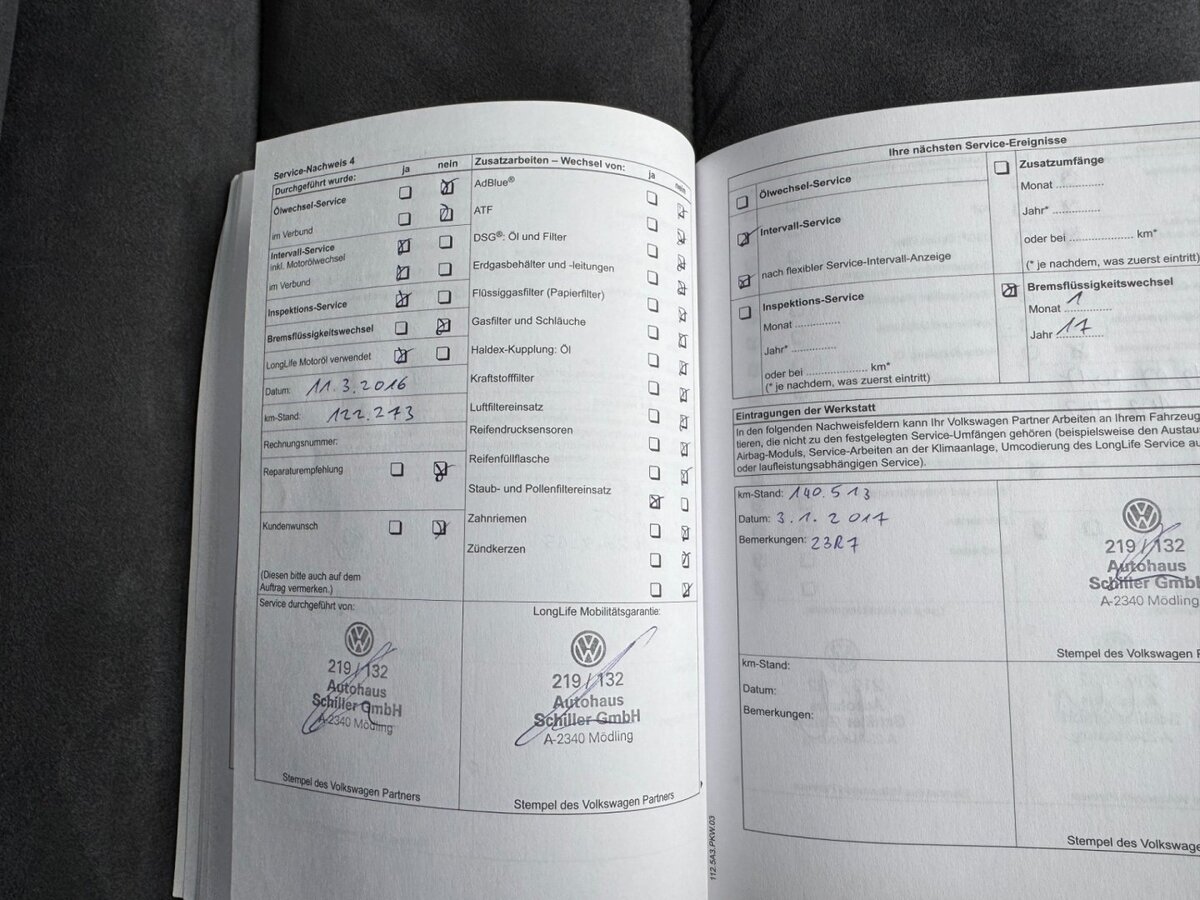 Service-Nachweis 4
Durchgeführt wurde:
ja nein
Ölwechsel-Service
im Verbund
Intervall-Service
inkl. Motorölwechsel
im Verbund
Inspektions-Service
Bremsflüssigkeitswechsel
LongLife Motoröl verwendet
Datum: 11.3.2016
km-Stand: 122.273
Rechnungsnummer:
Reparaturempfehlung
Kundenwunsch
(Diesen bitte auch auf dem
Auftrag vermerken.)
Zusatzarbeiten – Wechsel von:
ja nein
AdBlue®
ATF
DSG®: Öl und Filter
Erdgasbehälter und -leitungen
Flüssiggasfilter (Papierfilter)
Gasfilter und Schläuche
Haldex-Kupplung: Öl
Kraftstofffilter
Luftfiltereinsatz
Reifendrucksensoren
Reifenfüllflasche
Staub- und Pollenfiltereinsatz
Zahnriemen
Zündkerzen
Service durchgeführt von:
219 / 132
Autohaus
Schiller GmbH
A-2340 Mödling
Stempel des Volkswagen Partners
LongLife Mobilitätsgarantie:
219 / 132
Autohaus
Schiller GmbH
A-2340 Mödling
Stempel des Volkswagen Partners
112.5A3.PKW.03
Ihre nächsten Service-Ereignisse
Ölwechsel-Service
Intervall-Service
nach flexibler Service-Intervall-Anzeige
Inspektions-Service
Monat ..............
Jahr* ..............
oder bei .................... km*
(* je nachdem, was zuerst eintritt)
Zusatzumfänge
Monat ..............
Jahr* ..............
oder bei .................... km*
(* je nachdem, was zuerst eintritt)
Bremsflüssigkeitswechsel
Monat 1
Jahr 17
Eintragungen der Werkstatt
In den folgenden Nachweisfeldern kann Ihr Volkswagen Partner Arbeiten an Ihrem Fahrzeug
tieren, die nicht zu den festgelegten Service-Umfängen gehören (beispielsweise den Austaus
Airbag-Moduls, Service-Arbeiten an der Klimaanlage, Umcodierung des LongLife Service au
oder laufleistungsabhängigen Service).
km-Stand: 140.513
Datum: 3.1.2017
Bemerkungen: 23R7
219 / 132
Autohaus
Schiller GmbH
A-2340 Mödling
Stempel des Volkswagen P
km-Stand:
Datum:
Bemerkungen:
Stempel des Volkswage